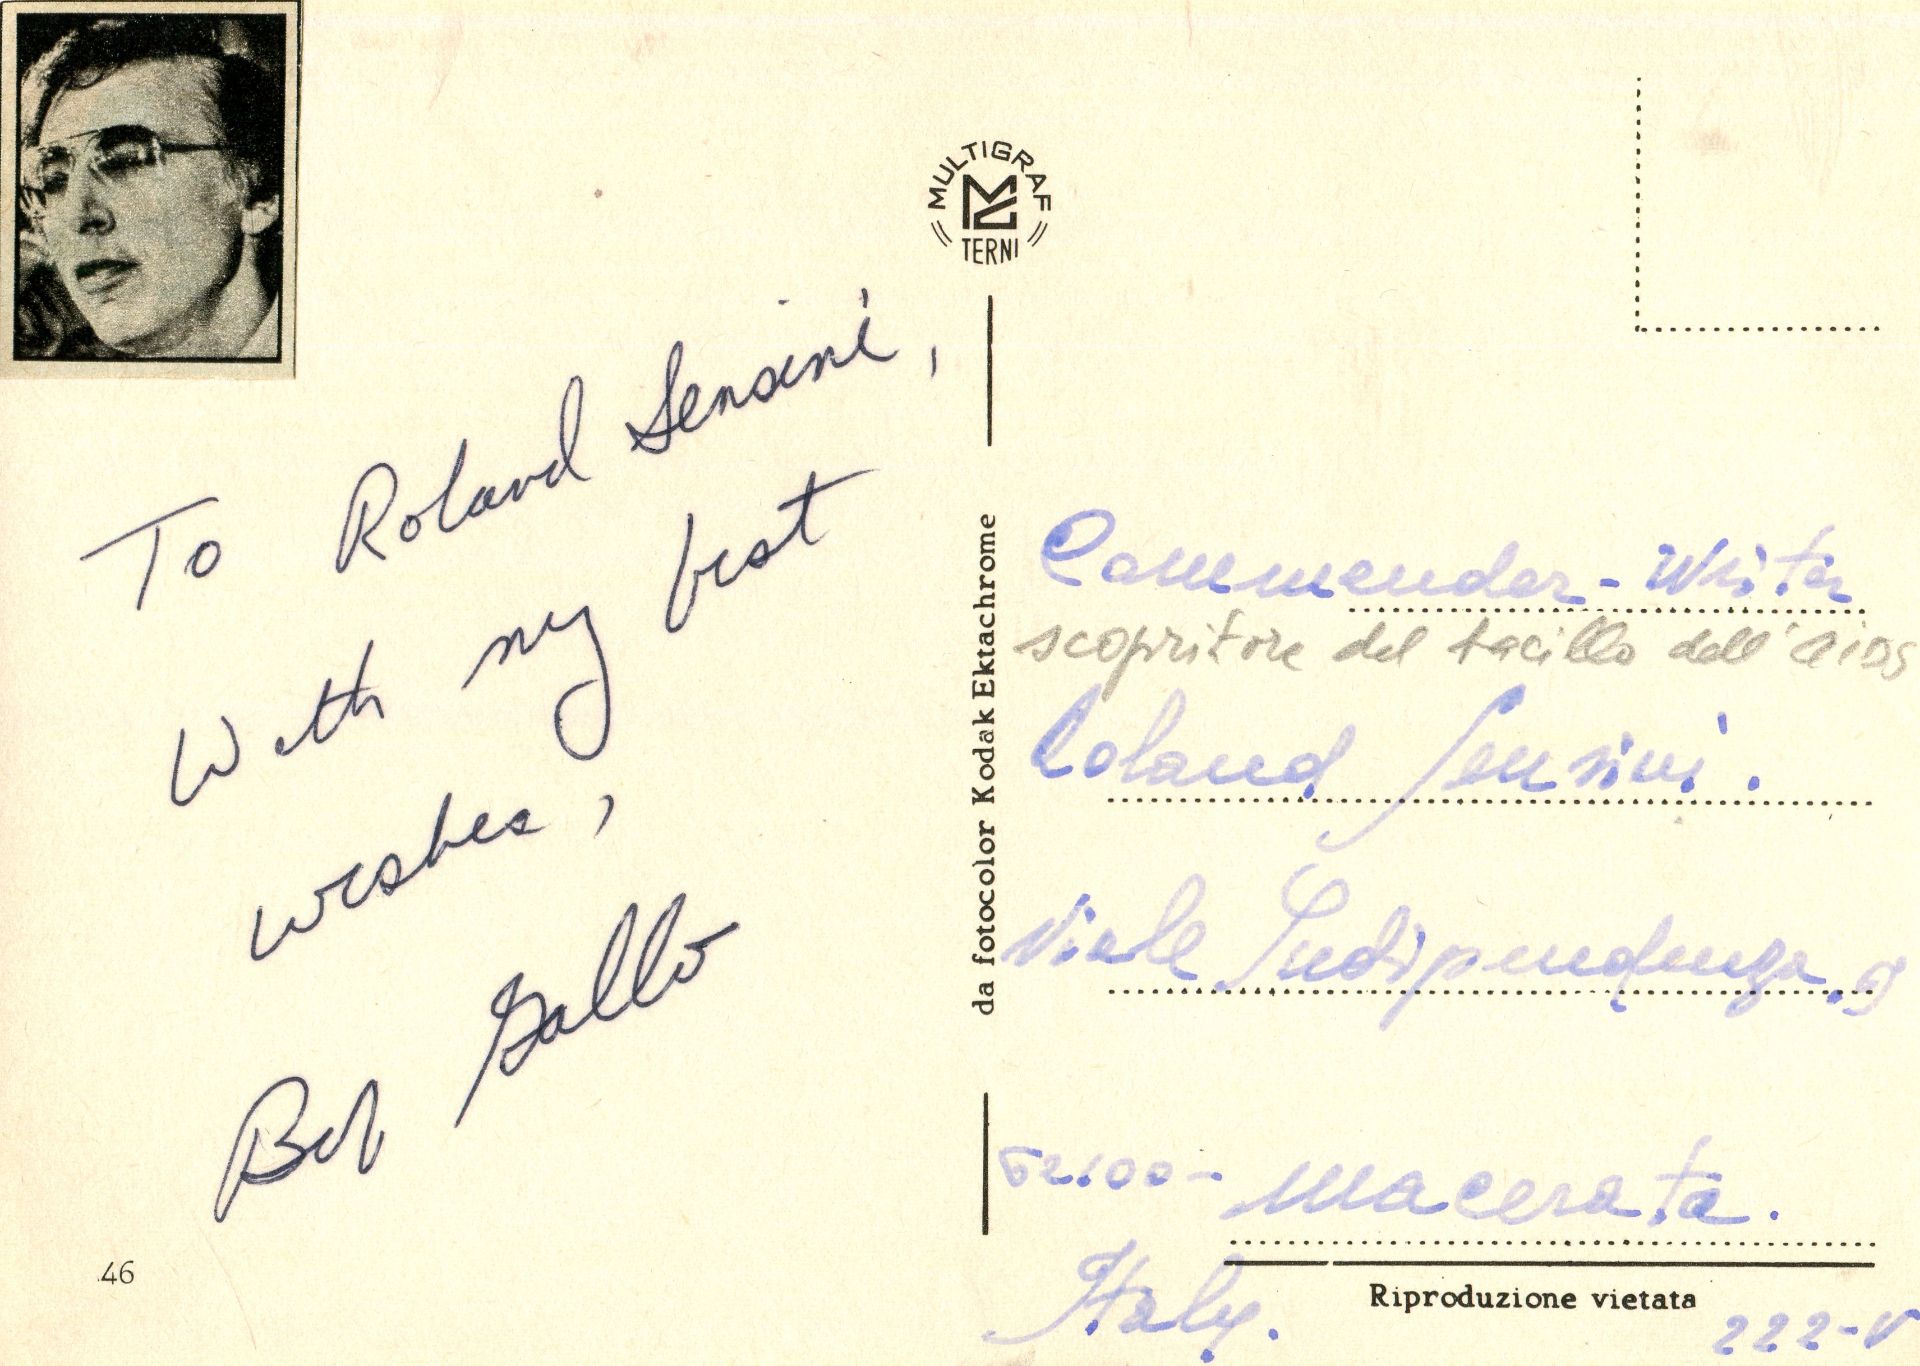 MULTIGRAF
TERNI
To Roland Sensini,
With my best
wishes,
Bob Gallo
46
da fotocolor Kodak Ektachrome
Commender - Writer
scopritore del bacillo dell'aids
Roland Sensini.
Viale Indipendenza, 9
62100 - Macerata.
Italy.
Riproduzione vietata
222-V